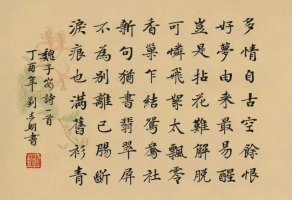 多情自古空餘恨
好夢由來最易醒
豈是拈花難解脫
可憐飛絮太飄零
香巢乍結鴛鴦社
新句猶書翡翠屏
不為別離已腸斷
淚痕也滿舊衫青
魏子安詩一首
丁酉年劉書